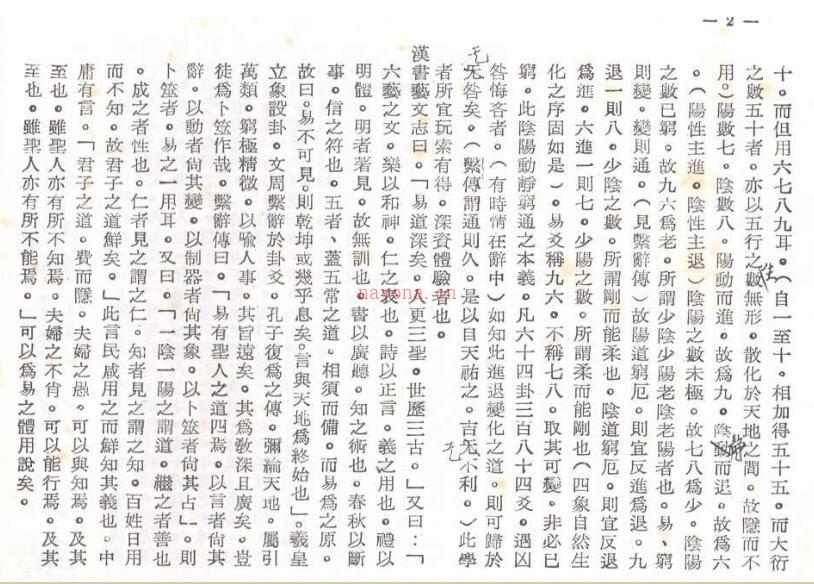 — 2 —
十。而但用六七八九耳。(自一至十。相加得五十五。而大衍
之數五十者。亦以五行之數無形。散化於天地之間。故隱而不
用)陽數七。陰數八。陽動而進。故爲九。陰動而退。故爲六
。(陽性主進。陰性主退)陰陽之數未極。故七八爲少。陰陽
之數已窮。故九六爲老。所謂少陰少陽老陰老陽者也。易、窮
則變。變則通。(見繫辭傳)故陽道窮厄。則宜反進爲退。九
退一則八。少陰之數。所謂剛而能柔也。陰道窮厄。則宜反退
爲進。六進一則七。少陽之數。所謂柔而能剛也(四象自然生
化之序固如是)。易爻稱九六。不稱七八。取其可變。非必已
窮。此陰陽動靜窮通之本義。凡六十四卦三百八十四爻。遇凶
咎悔吝者。(有時情在辭中)如知此進退變化之道。則可歸於
无咎矣。(繫傳謂通則久。是以自天祐之。吉无不利。)此學
者所宜玩索有得。深資體驗者也。
漢書藝文志曰。「易道深矣。人更三聖。世歷三古。」又曰:「
六藝之文。樂以和神。仁之表也。詩以正言。義之用也。禮以
明體。明者著見。故無訓也。書以廣聽。知之術也。春秋以斷
事。信之符也。五者、蓋五常之道。相須而備。而易爲之原。
故曰。易不可見。則乾坤或幾乎息矣。言與天地爲終始也」。羲皇
立象設卦。文周繫辭於卦爻。孔子復爲之傳。彌綸天地。屬引
萬類。窮極精微。以喻人事。其旨遠矣。其爲敎深且廣矣。豈
徒爲卜筮作哉。繫辭傳曰。「易有聖人之道四焉。以言者尚其
辭。以動者尚其變。以制器者尚其象。以卜筮者尚其占」。則
卜筮者。易之一用耳。又曰。「一陰一陽之謂道。繼之者善也
。成之者性也。仁者見之謂之仁。知者見之謂之知。百姓日用
而不知。故君子之道鮮矣。」此言民咸用之而鮮知其義也。中
庸有言。「君子之道。費而隱。夫婦之愚。可以與知焉。及其
至也。雖聖人亦有所不知焉。夫婦之不肖。可以能行焉。及其
至也。雖聖人亦有所不能焉。」可以爲易之體用說矣。
无
无
nayona.cn